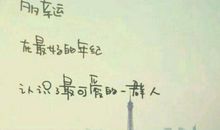 幸运
在最好的年纪
认识了最可爱的一群人